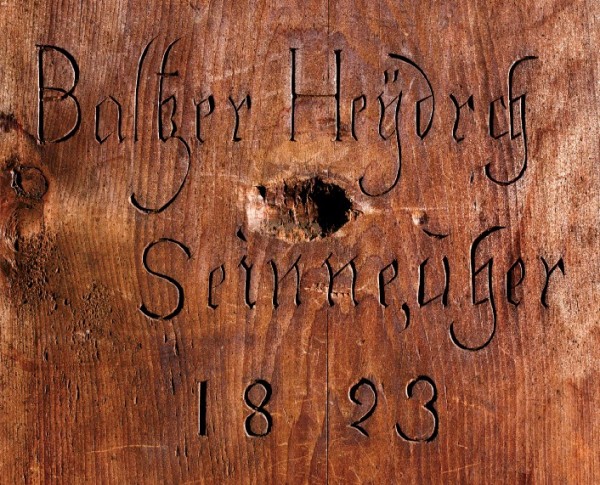 Baltzer Heÿdrch
Seinne,ùher
18 23